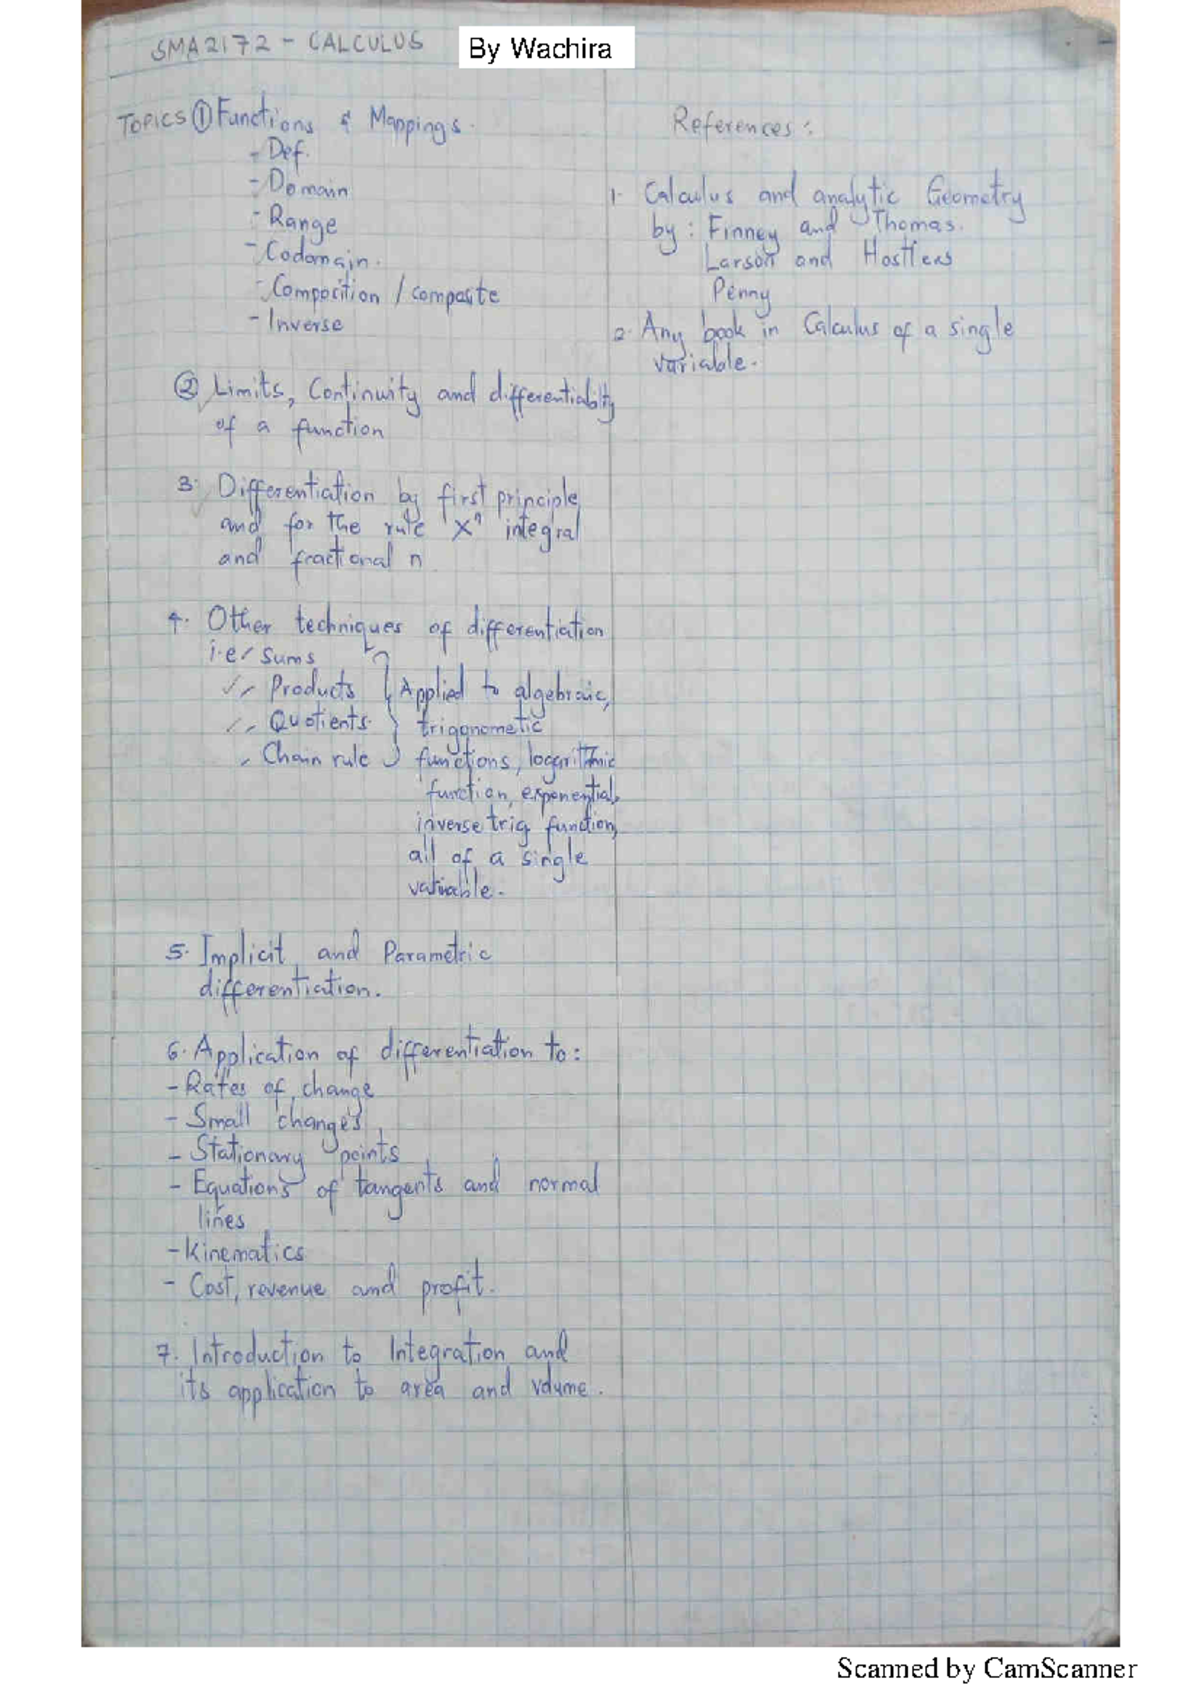 SMA 2172 - CALCULUS
By Wachira
TOPICS ① Functions & Mappings.
- Def.
- Domain
- Range
- Codomain.
- Composition / composite
- Inverse
② Limits, Continuity and differentiability
of a function
3. Differentiation by first principle
and for the rule xⁿ integral
and fractional n
4. Other techniques of differentiation
i.e/ Sums
- Products
- Quotients
- Chain rule
Applied to algebraic,
trigonometric
functions, logarithmic
function, exponential,
inverse trig function,
all of a single
variable.
5. Implicit and Parametric
differentiation.
6. Application of differentiation to:
- Rates of change
- Small changes
- Stationary points
- Equations of tangents and normal
lines
- Kinematics
- Cost, revenue and profit.
7. Introduction to Integration and
its application to area and volume.
References:
1. Calculus and analytic Geometry
by: Finney and Thomas.
Larson and Hostlers
Penny
2. Any book in Calculus of a single
variable.
Scanned by CamScanner